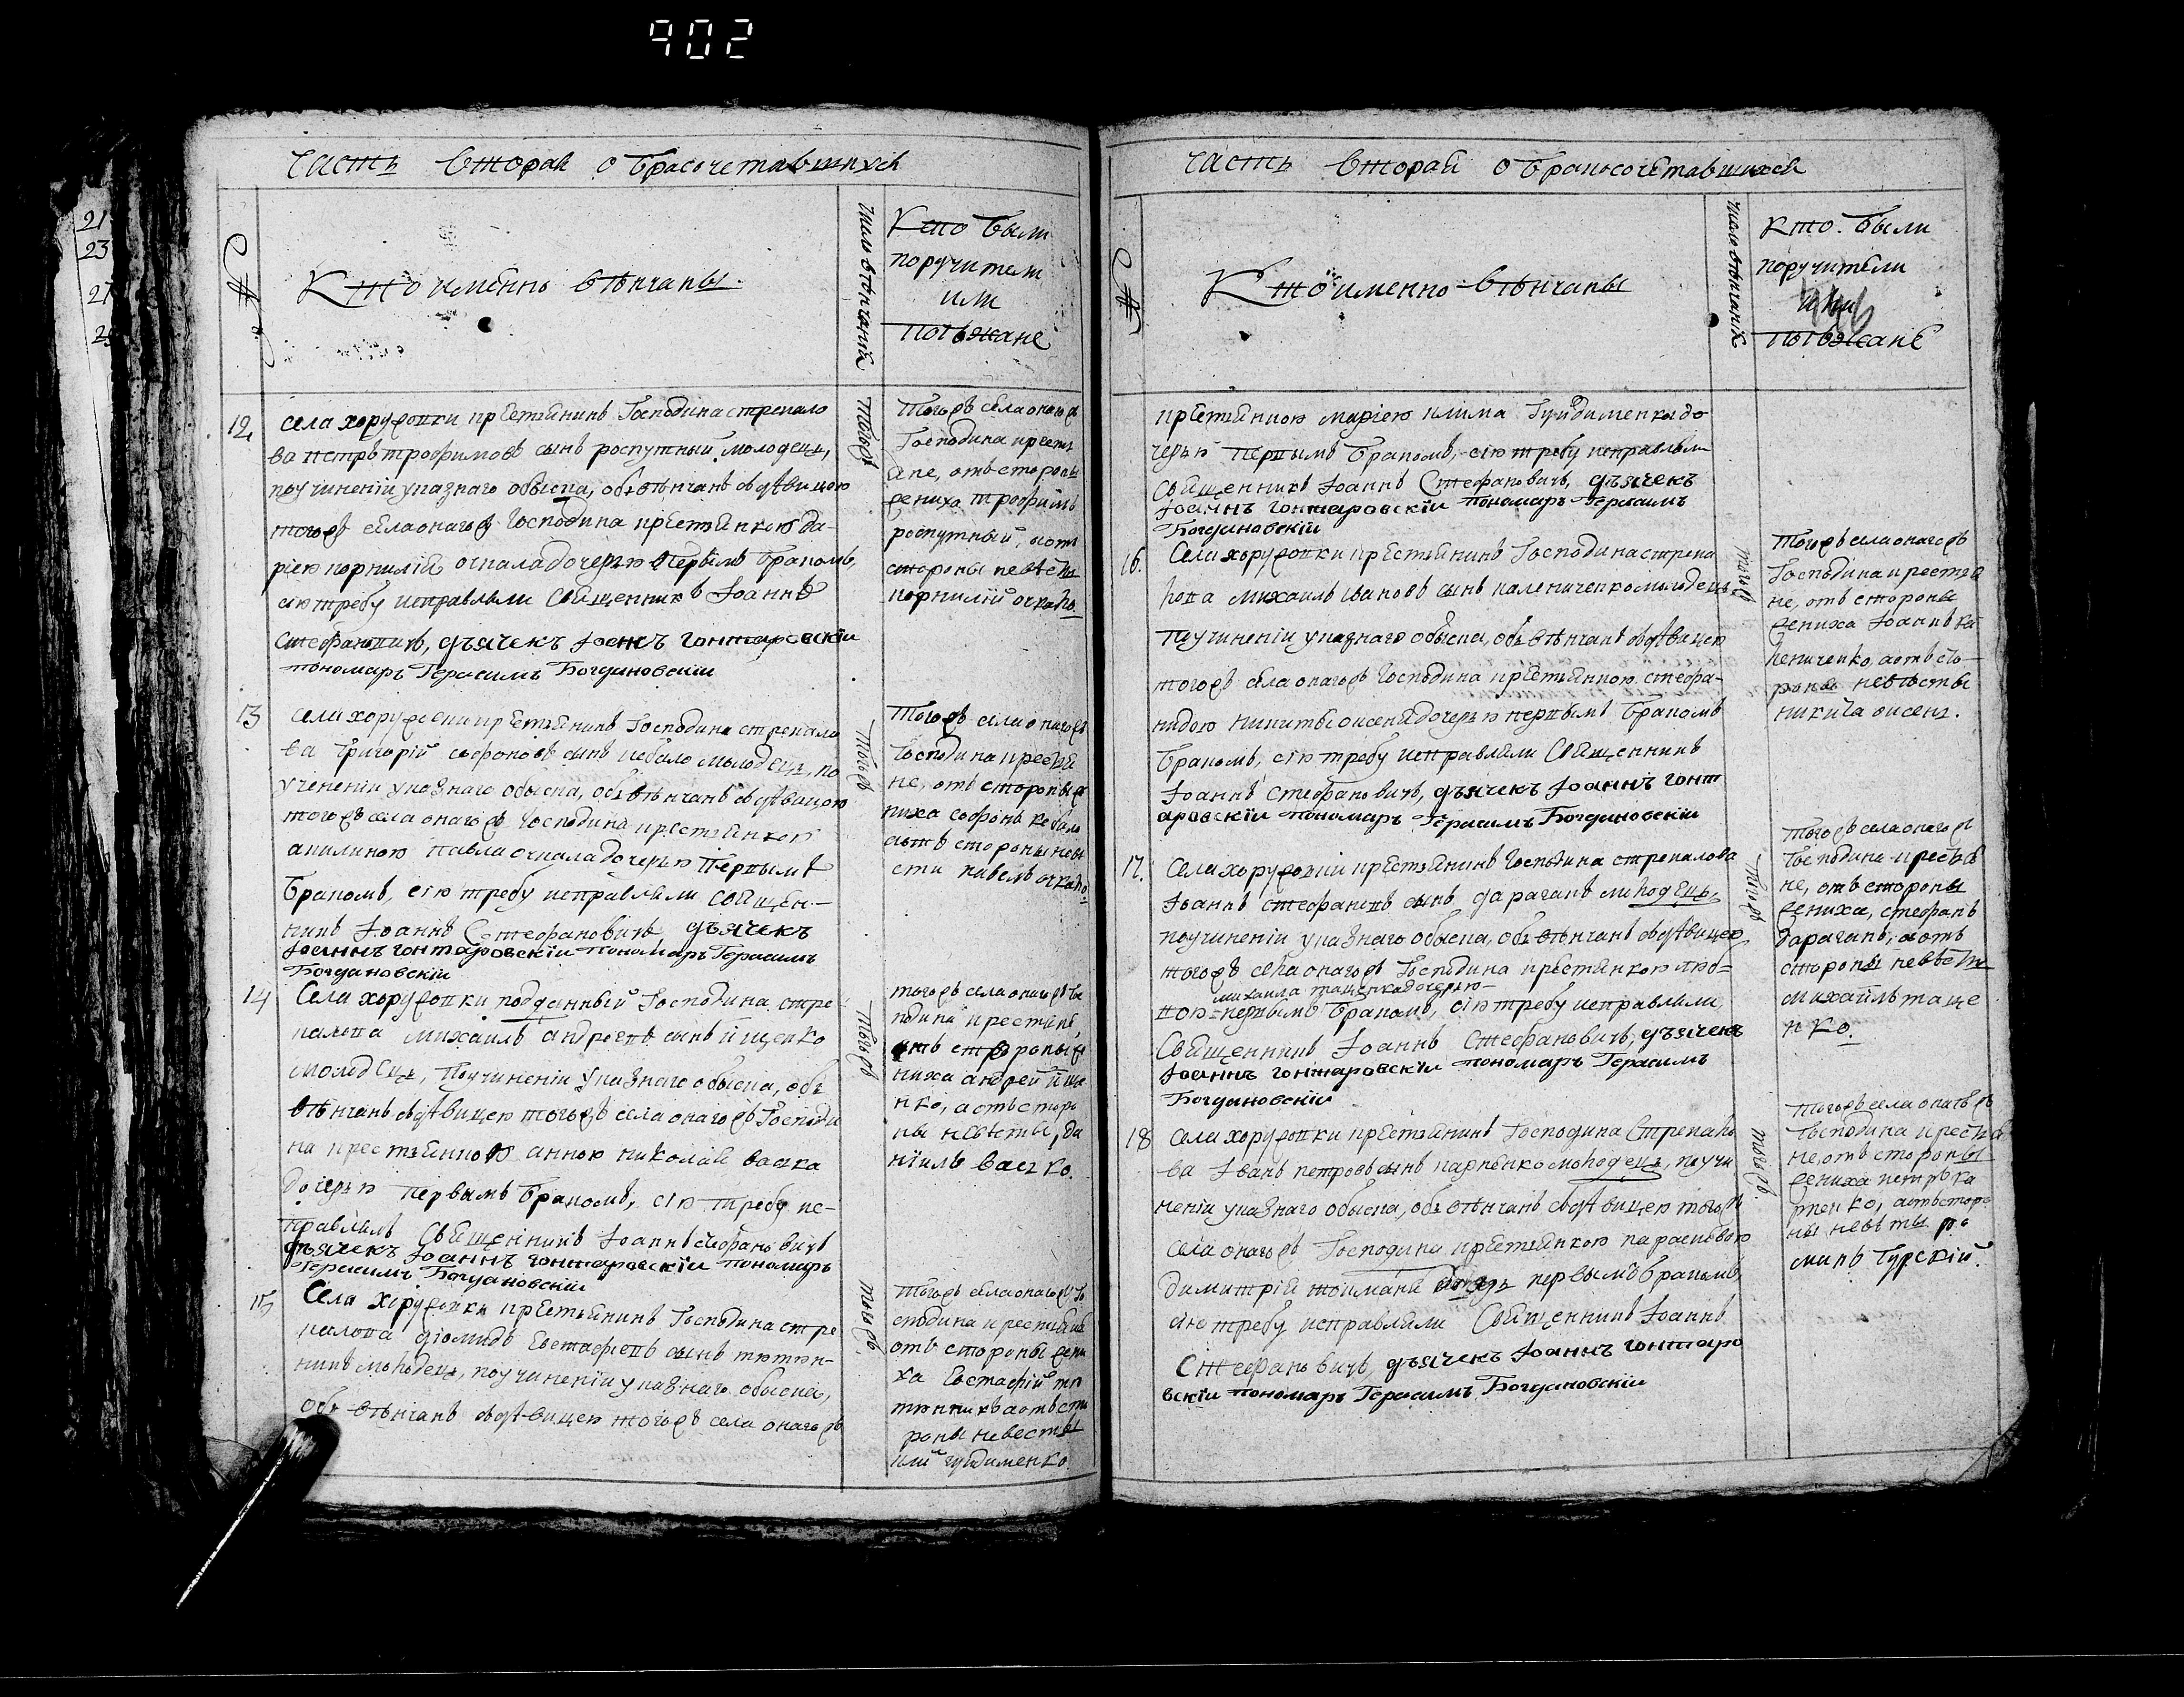 902
21
23
27
Часть вторая о брасочетавшихся
№
Кто именно вѣнчаны.
число вѣнчания
Кто были
поручители
или
поѣжжане
12
села хоружовки крестянинъ Господина стрекало
ва петръ трофимовъ сынъ роспутный молодецъ,
поучиненіи указнаго обыска, обвѣнчанъ здѣвицою
тогожъ села онагожъ Господина крестянкою да-
ріею корнилія очкала дочерью первымъ бракомъ,
сію требу исправляли Священникъ Іоаннъ
Стефановичъ, дьячекъ Іоаннъ гонтаровскіи
пономаръ Герасимъ Богдановскіи
тогожъ
Тогожъ села онагожъ
Господина крестя
не, отъ стороны
жениха трофимъ
роспутный, аотъ
стороны невѣсты
корнилій очкало
13
села хоружовки крестянинъ Господина стрекало
ва Григорій софоновъ сынъ кебало молодецъ, по
учененіи указнаго обыска, обвѣнчанъ здѣвицою
тогожъ села онагожъ Господина крестянкою
акилиною павла очкала дочерью первымъ
бракомъ, сію требу исправляли Священ-
никъ Іоаннъ Стефановичъ дьячекъ
Іоаннъ гонтаровскіи пономаръ Герасимъ
Богдановскіи
тогожъ
Тогожъ села онагожъ
Господина крестя
не, отъ стороны же
ниха софонъ кебало
аотъ стороны невѣ
сти павелъ очкало
14
Села хоружовки подданный Господина стре
калова михаилъ андреевъ сынъ йщенко
молодецъ, поучиненіи указнаго обыска, обѣ
вѣнчанъ здѣвицею тогожъ села онагожъ Господи
на крестянкою анною николая васка
дочерью первымъ бракомъ, сію требу ис-
правляли Священникъ Іоаннъ Стефановичъ
дьячекъ Іоаннъ гонтаровскіи пономаръ
Герасимъ Богдановскіи
тогожъ
тогожъ села онагожъ Го
подина крестяне,
отъ стороны же
ниха андрей йще
нко, аотъ сторо
ны невѣсты, да
ніилъ васко.
15
Села хоружовки крестянинъ Господина стре
калова діомидъ Евстафіевъ сынъ тютюн-
никъ молодецъ, поучиненіи указнаго обыска,
обвѣнчанъ здѣвицею тогожъ села онагожъ
тогожъ
Тогожъ села онагожъ Го
сподина крестяне
отъ стороны жени
ха Евстафій тю
тюнникъ аотъ сто
роны невесты
клий гуйдименко
Часть вторая о бракосочетавшихся
№
Кто именно вѣнчаны
число вѣнчания
Кто были
поручители
или
поѣжжане
крестянкою маріею клима Гуйдименка до
черью первымъ бракомъ, сію требу исправляли
Священникъ Іоаннъ Стефановичъ, дьячекъ
Іоаннъ гонтаровскіи пономаръ Герасимъ
Богдановскіи
16.
Села хоружовки крестянинъ Господина стрека
лова михаилъ ивановъ сынъ калениченко молодецъ
поучиненіи указнаго обыска, обвѣнчанъ здѣвицею
тогожъ села онагожъ Господина крестянкою стефа-
нидою никиты оисеня дочерью первымъ бракомъ
бракомъ, сію требу исправляли Священникъ
Іоаннъ Стефановичъ, дьячекъ Іоаннъ гонт
аровскіи пономаръ Герасимъ Богдановскіи
тогожъ
Тогожъ села онагожъ
Господина крестя
не, отъ стороны
жениха Іоаннъ ка
лениченко, аотъ сто-
роны невѣсты
никита оисень.
17.
Села хоружовки крестянинъ Господина стрекалова
Іоаннъ стефановъ сынъ дараганъ молодецъ,
поучиненіи указнаго обыска, обвѣнчанъ здѣвицею
тогожъ села онагожъ Господина крестянкою люб-
михаила таценка дочерью
вою первымъ бракомъ, сію требу исправляли,
Священникъ Іоаннъ Стефановичъ, дьячекъ
Іоаннъ гонтаровскіи пономаръ Герасимъ
Богдановскіи
тогожъ
тогожъ села онагожъ
Господина крестя
не, отъ стороны
жениха, стефанъ
дараганъ, аотъ
стороны невѣсты
михаилъ таце
нко.
18
села хоружовки крестянинъ Господина Стрекало
ва Іванъ петровъ сынъ карпенко молодецъ, поучи
неніи указнаго обыска, обвѣнчанъ здѣвицею тогожъ
села онагожъ Господина крестянкою параскевою
димитрія первымъ бракомъ,
сію требу исправляли Священникъ Іоаннъ
Стефановичъ, дьячекъ Іоаннъ гонтаро
вскіи пономаръ Герасимъ Богдановскіи
тогожъ
тогожъ села онагожъ
Господина крестя
не, отъ стороны
жениха петръ ка
рпенко, аотъ сторо
ны невѣсты ро
манъ Гурскій.